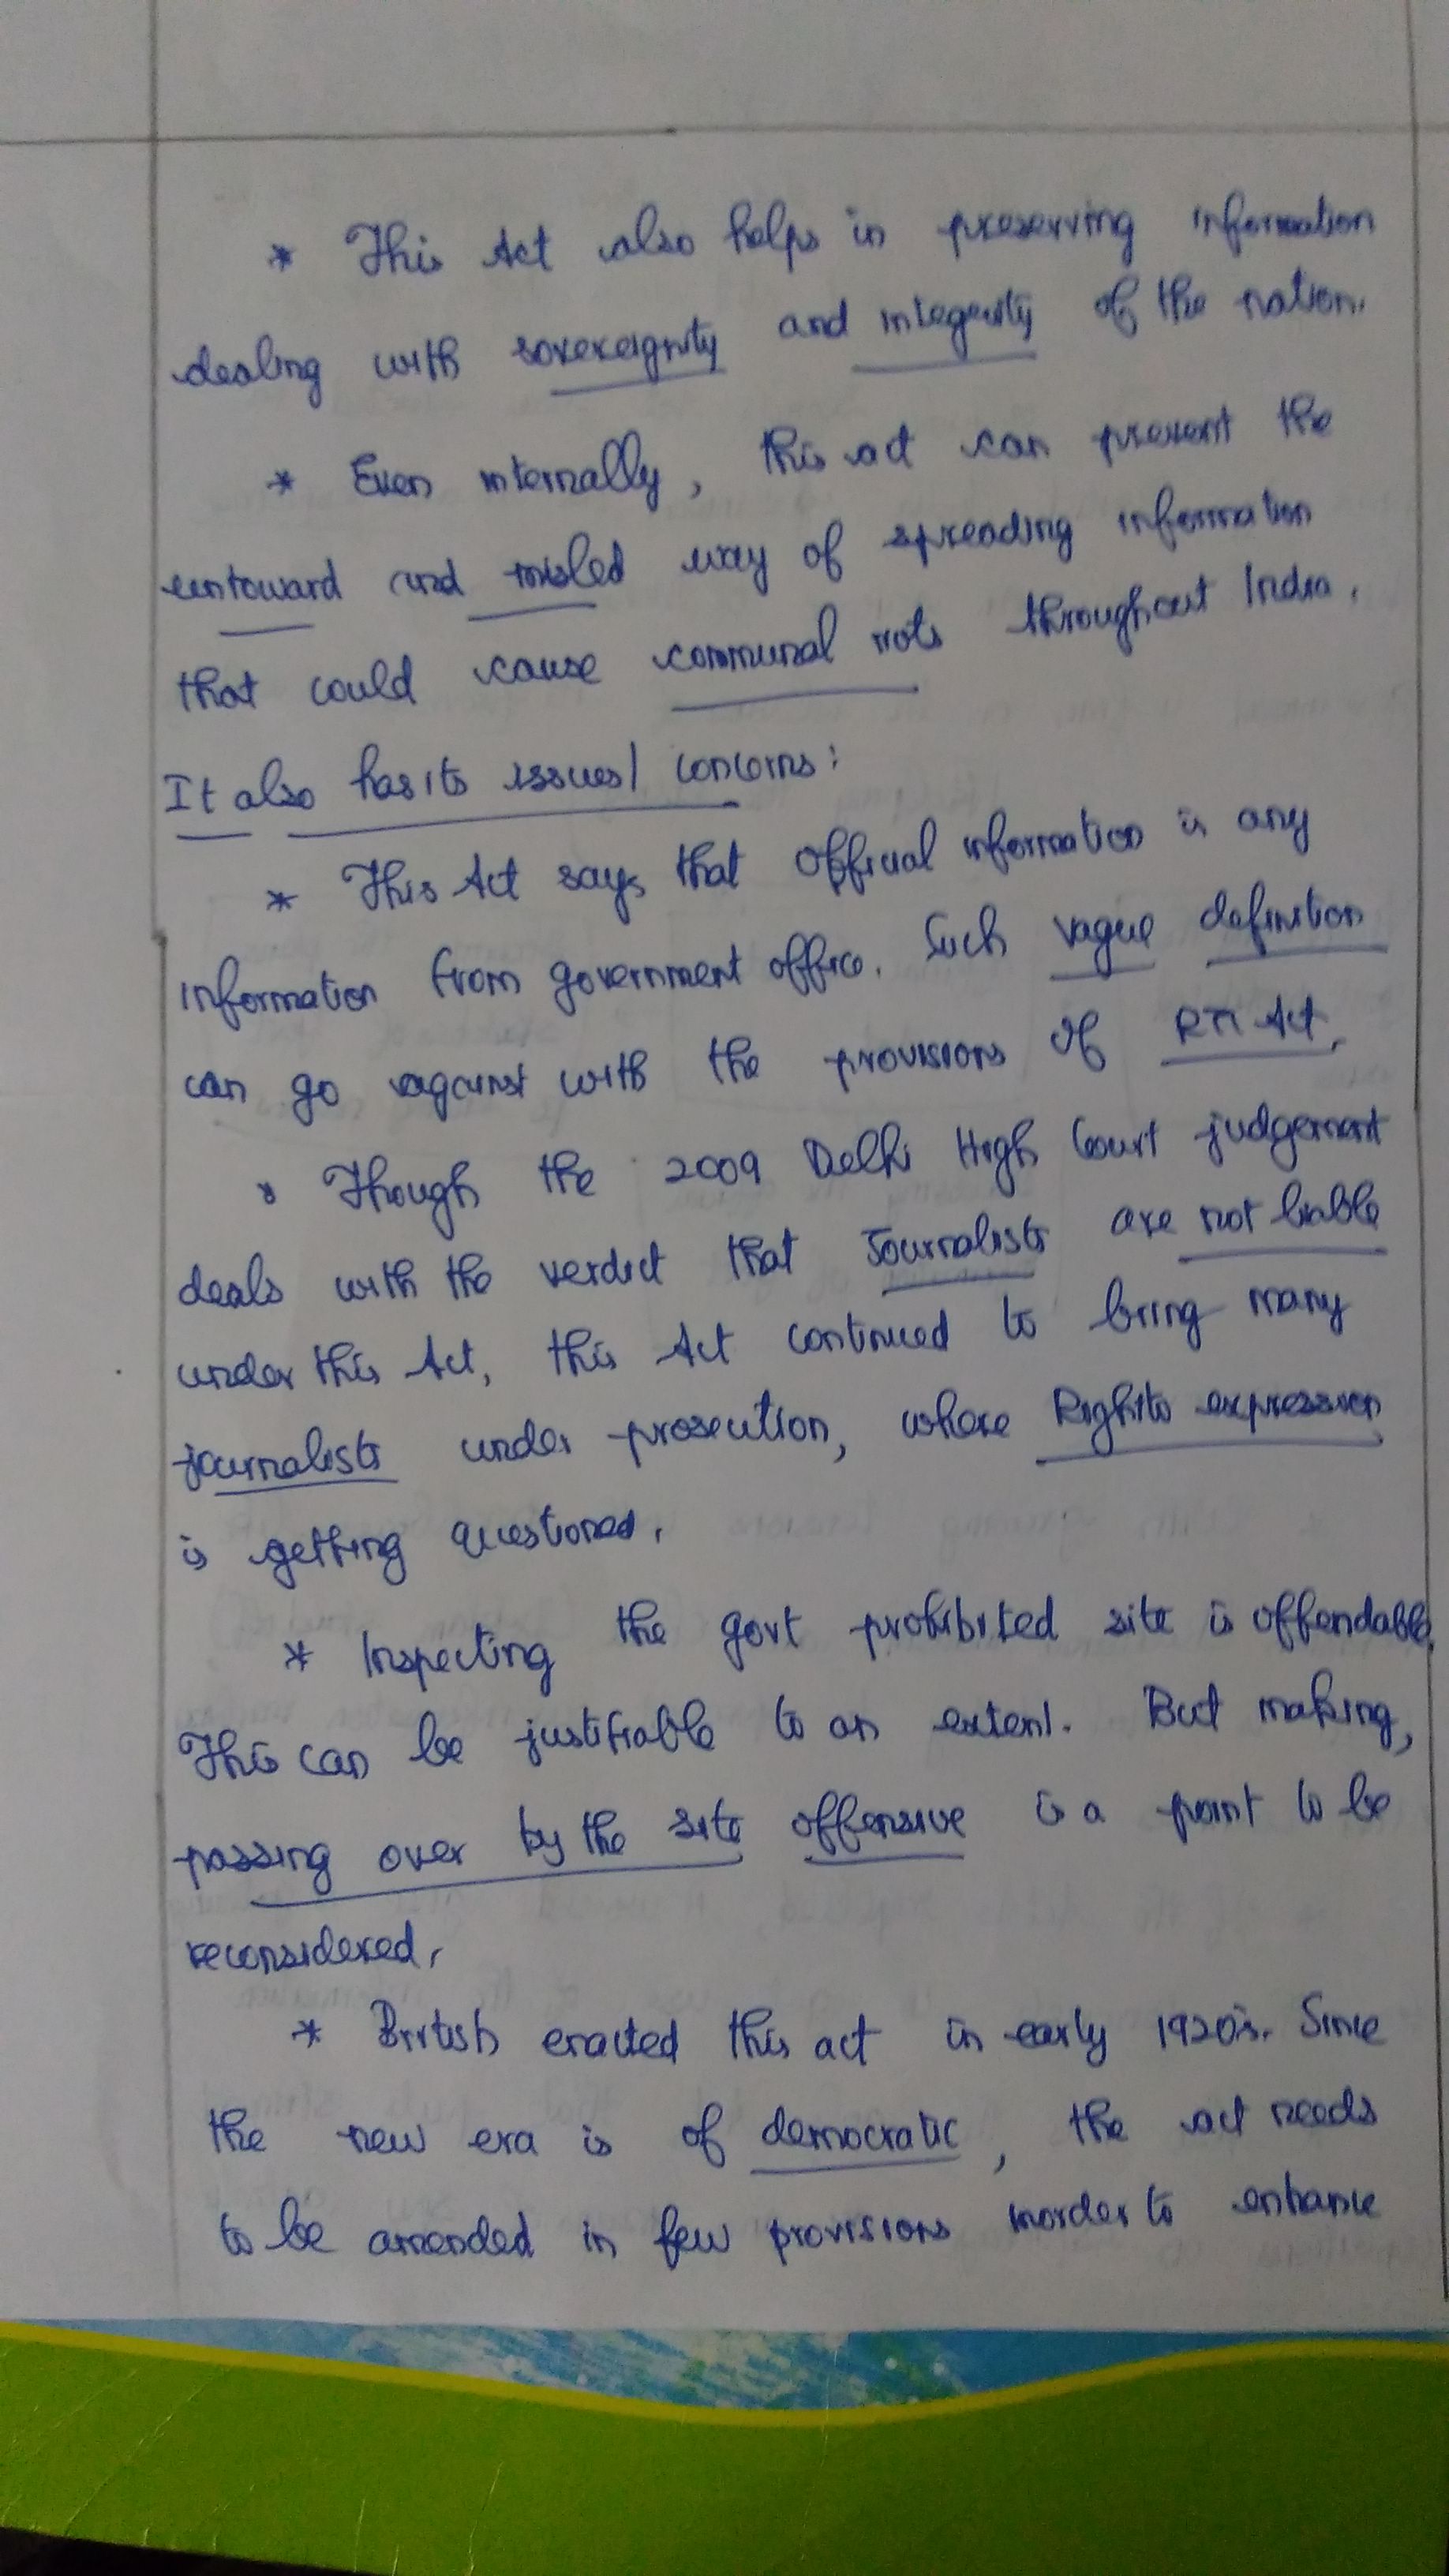 * This Act also helps in preserving information
dealing with sovereignity and integerity of the nation.
* Even internally, this act can prevent the
untoward and misled way of spreading information
that could cause communal riots throughout India.
It also has its issues/ concerns:
* This Act says that official information is any
information from government office. Such vague definition
can go against with the provisions of RTI Act.
* Though the 2009 Delhi High Court judgement
deals with the verdict that Journalists are not liable
under this Act, this Act continued to bring many
journalists under prosecution, where Right to expression
is getting questioned.
* Inspecting the govt prohibited site is offendable.
This can be justifiable to an extent. But making,
passing over by the site offensive is a point to be
reconsidered.
* British enacted this act in early 1920's. Since
the new era is of democratic, the act needs
to be amended in few provisions inorder to enhance